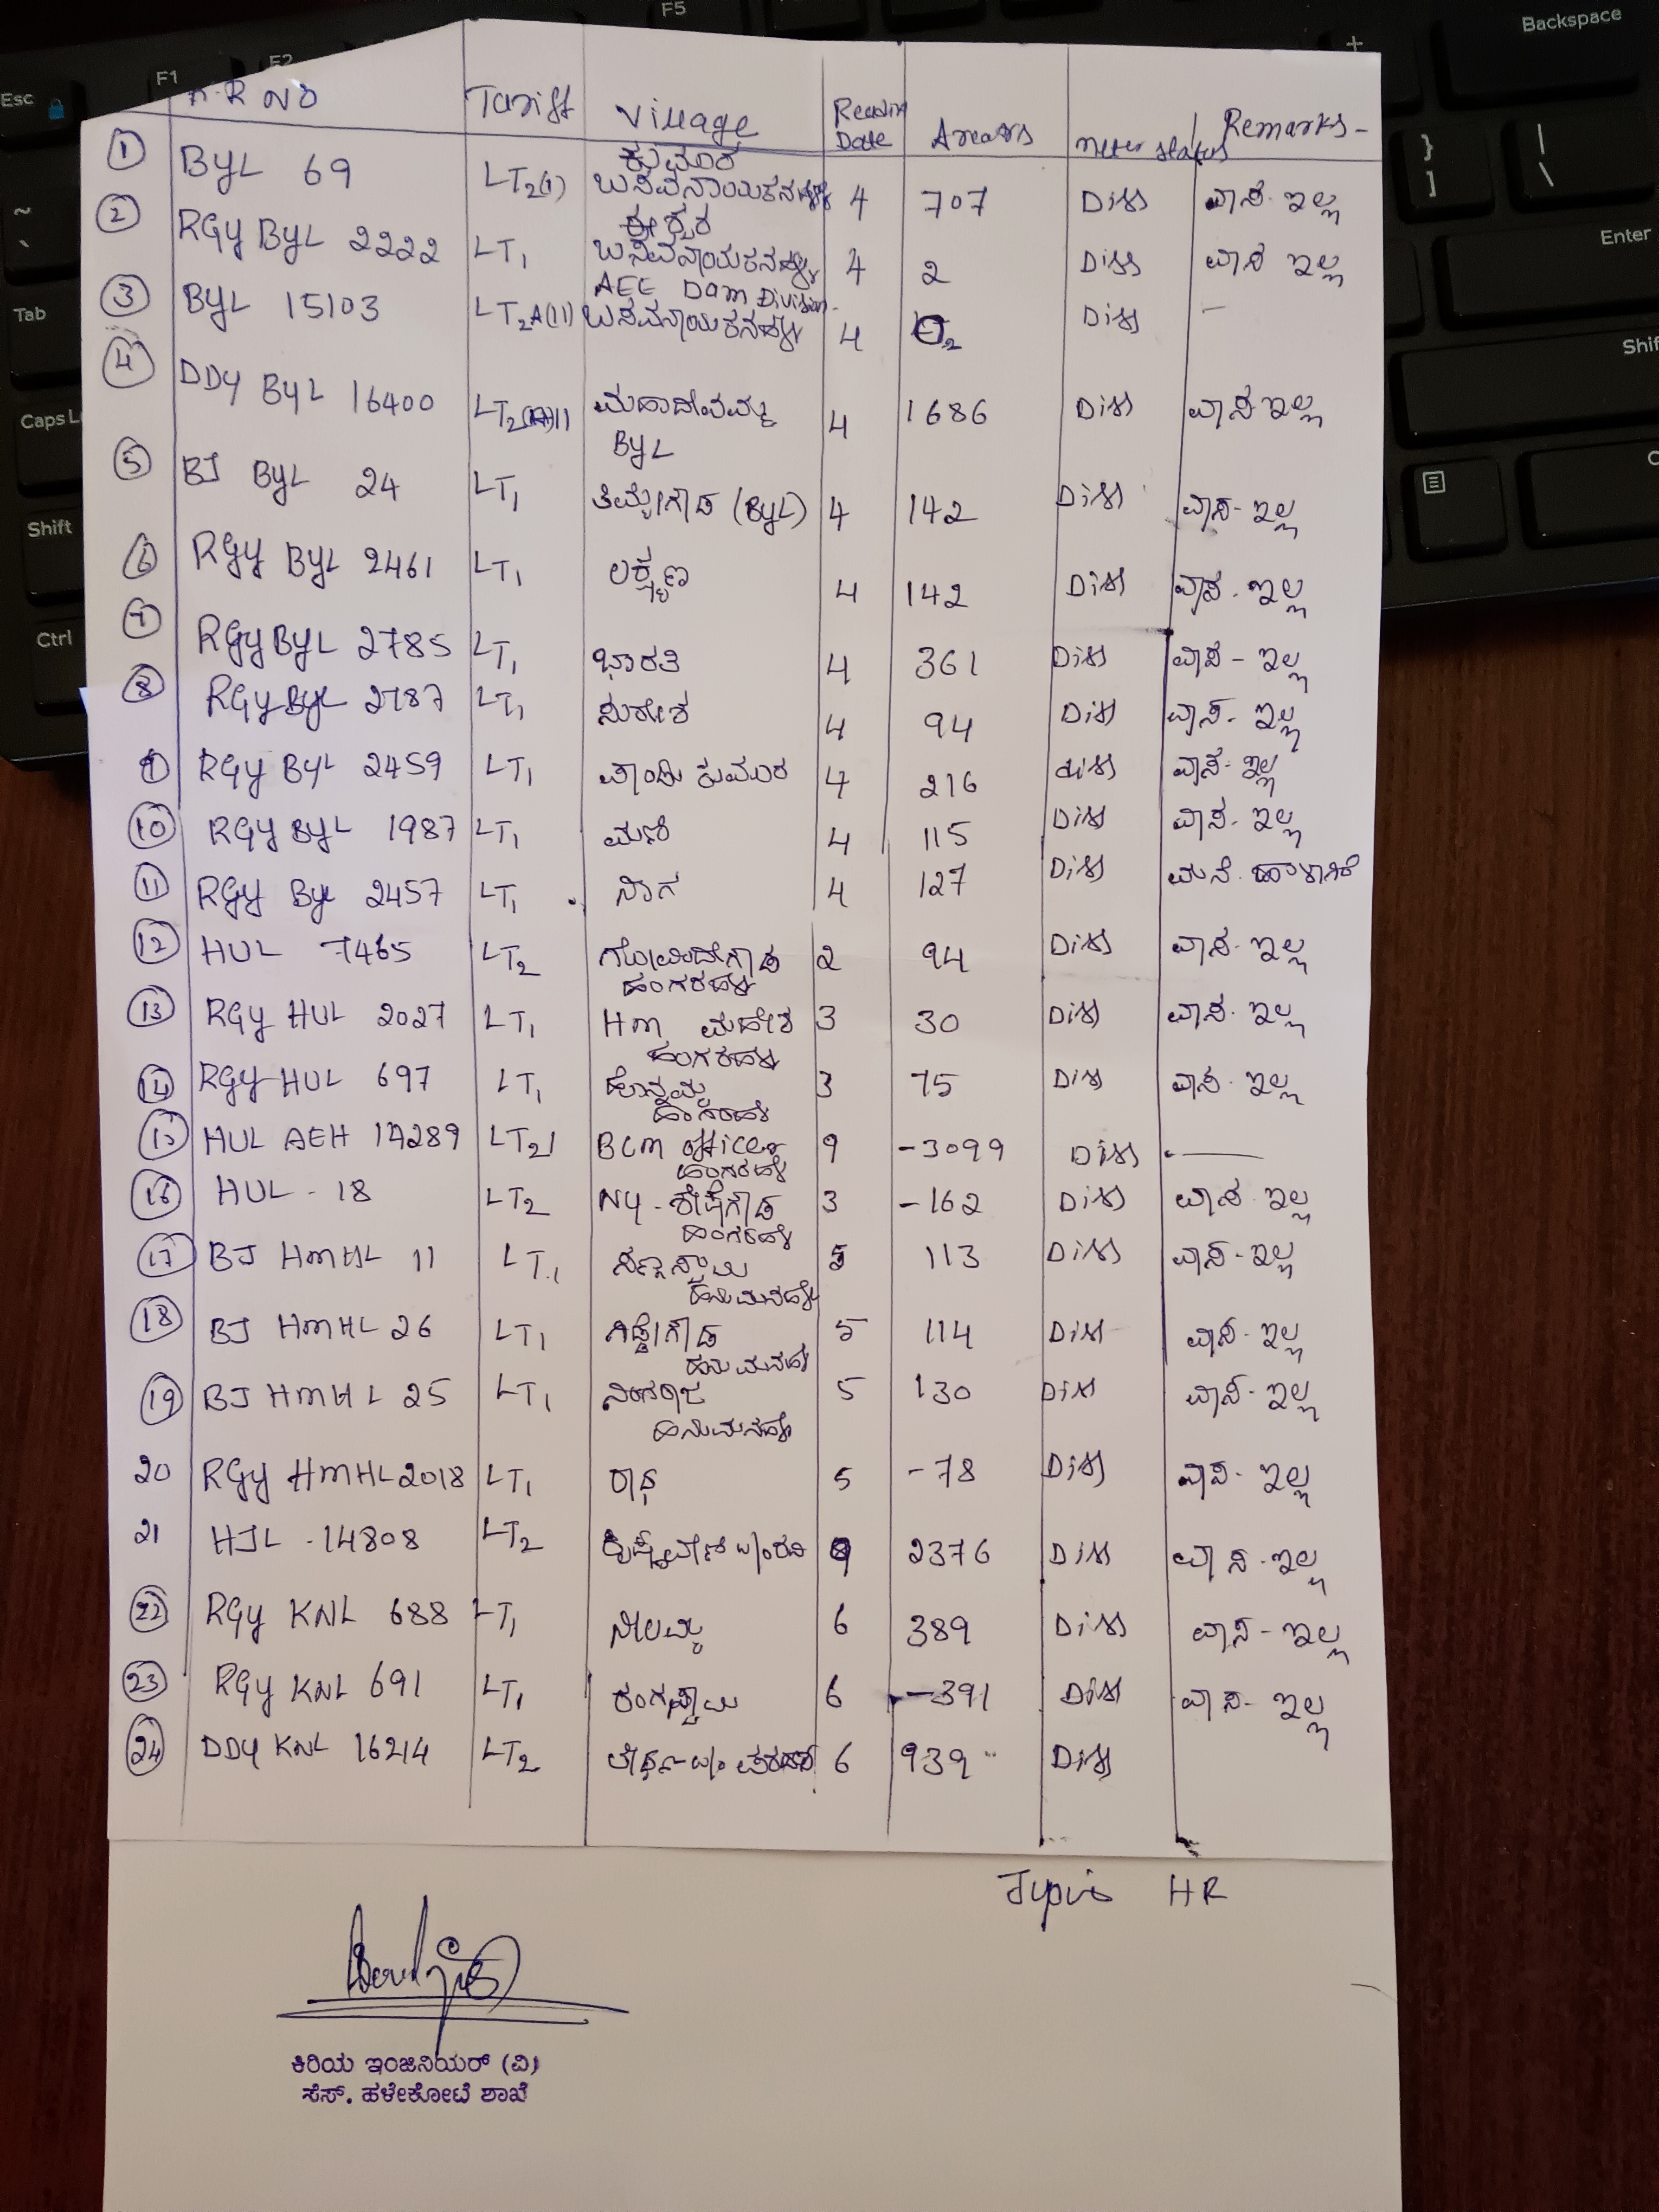 R R NO Tariff Village Reading Date Arears meter status Remarks -
1 ByL 69 LT2(1) ಕುಮಾರ ಬಸವನಾಯಕನಹಳ್ಳಿ 4 707 Diss ವಾಸ ಇಲ್ಲ
2 RGY ByL 2222 LT1 ಈಶ್ವರ ಬಸವನಾಯಕನಹಳ್ಳಿ 4 2 Diss ವಾಸ ಇಲ್ಲ
3 ByL 15103 LT2A(11) AEE Dam Division ಬಸವನಾಯಕನಹಳ್ಳಿ 4 Diss -
4 DDY ByL 16400 ಮಹಾದೇವಮ್ಮ ByL 4 1686 Diss ವಾಸ ಇಲ್ಲ
5 BJ ByL 24 LT1 ತಿಮ್ಮೇಗೌಡ (ByL) 4 142 Diss ವಾಸ - ಇಲ್ಲ
6 RGY ByL 2461 LT1 ಲಕ್ಷ್ಮಣ 4 142 Diss ವಾಸ - ಇಲ್ಲ
7 RGY ByL 2785 LT1 ಭಾರತಿ 4 361 Diss ವಾಸ - ಇಲ್ಲ
8 RGY ByL 2787 LT1 ಸುರೇಶ 4 94 Diss ವಾಸ - ಇಲ್ಲ
9 RGY ByL 2459 LT1 ಕುಮಾರ 4 216 diss ವಾಸ - ಇಲ್ಲ
10 RGY ByL 1987 LT1 ಮಣಿ 4 115 Diss ವಾಸ - ಇಲ್ಲ
11 RGY ByL 2457 LT1 ನಾಗ 4 127 Diss ಮನೆ
12 HUL 7465 LT2 ಗೋವಿಂದೇಗೌಡ ಹಂಗರಹಳ್ಳಿ 2 94 Diss ವಾಸ - ಇಲ್ಲ
13 RGY HUL 2027 LT1 Hm ಮಹೇಶ ಹಂಗರಹಳ್ಳಿ 3 30 Diss ವಾಸ - ಇಲ್ಲ
14 RGY HUL 697 LT1 ಹೊನ್ನಮ್ಮ ಹಂಗರಹಳ್ಳಿ 3 75 Diss ವಾಸ - ಇಲ್ಲ
15 HUL AEH 14289 LT2 BCM officer ಹಂಗರಹಳ್ಳಿ 9 -3099 Diss -
16 HUL - 18 LT2 NY - ಶೇಷೇಗೌಡ ಹಂಗರಹಳ್ಳಿ 3 -162 Diss ವಾಸ - ಇಲ್ಲ
17 BJ HMHL 11 LT1 ಸಣ್ಣಸ್ವಾಮಿ ಹನುಮನಹಳ್ಳಿ 5 113 Diss ವಾಸ - ಇಲ್ಲ
18 BJ HMHL 26 LT1 ಹನುಮನಹಳ್ಳಿ 5 114 Diss ವಾಸ - ಇಲ್ಲ
19 BJ HMHL 25 LT1 ನಿಂಗರಾಜ ಹನುಮನಹಳ್ಳಿ 5 130 Diss ವಾಸ - ಇಲ್ಲ
20 RGY HMHL 2018 LT1 ರಾಧ 5 -78 Diss ವಾಸ - ಇಲ್ಲ
21 HJL - 14808 LT2 9 2376 Diss ವಾಸ - ಇಲ್ಲ
22 RGY KNL 688 LT1 ನೀಲಮ್ಮ 6 389 Diss ವಾಸ - ಇಲ್ಲ
23 RGY KNL 691 LT1 ರಂಗಸ್ವಾಮಿ 6 -391 Diss ವಾಸ - ಇಲ್ಲ
24 DDY KNL 16214 LT2 6 939 Diss
HR
ಕಿರಿಯ ಇಂಜಿನಿಯರ್ (ವಿ)
ಸೆಸ್. ಹಳೇಕೋಟೆ ಶಾಖೆ
Esc F1 F2 F5 Backspace
~ ` + } ] | \
Tab Enter
Caps L Shif
Shift
Ctrl